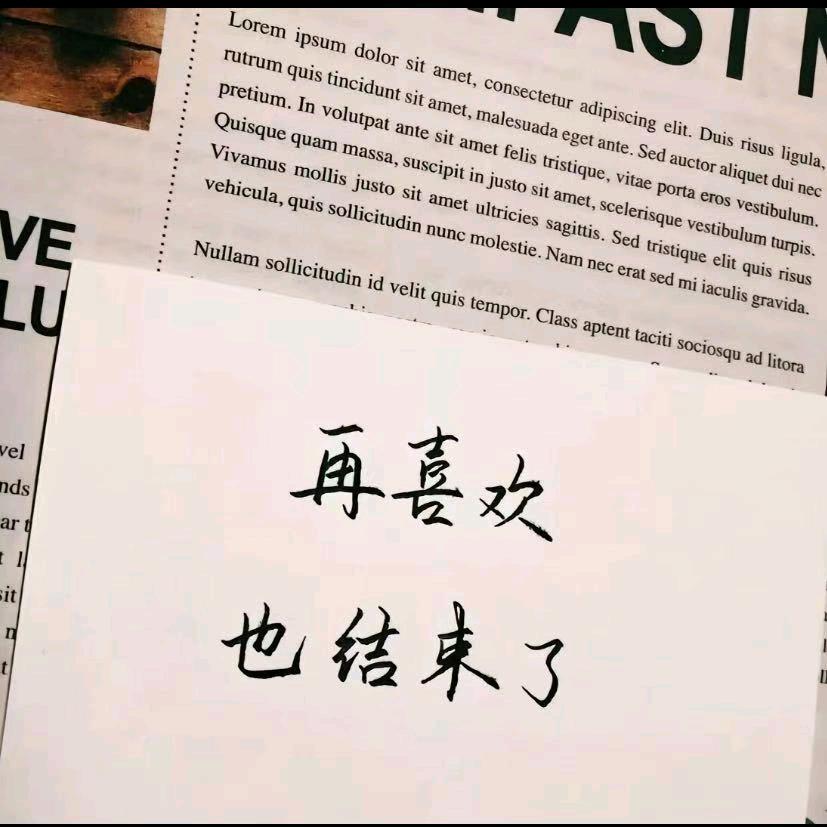 AST
Lorem ipsum dolor sit amet, consectetur adipiscing elit. Duis risus ligula,
rutrum quis tincidunt sit amet, malesuada eget ante. Sed auctor aliquet dui nec
pretium. In volutpat ante sit amet felis tristique, vitae porta eros vestibulum.
Quisque quam massa, suscipit in justo sit amet, scelerisque vestibulum turpis.
Vivamus mollis justo sit amet ultricies sagittis. Sed tristique elit quis risus
vehicula, quis sollicitudin nunc molestie. Nam nec erat sed mi iaculis gravida.
Nullam sollicitudin id velit quis tempor. Class aptent taciti sociosqu ad litora
VE
LU
vel
nds
ar t
sit
再喜欢
也结束了